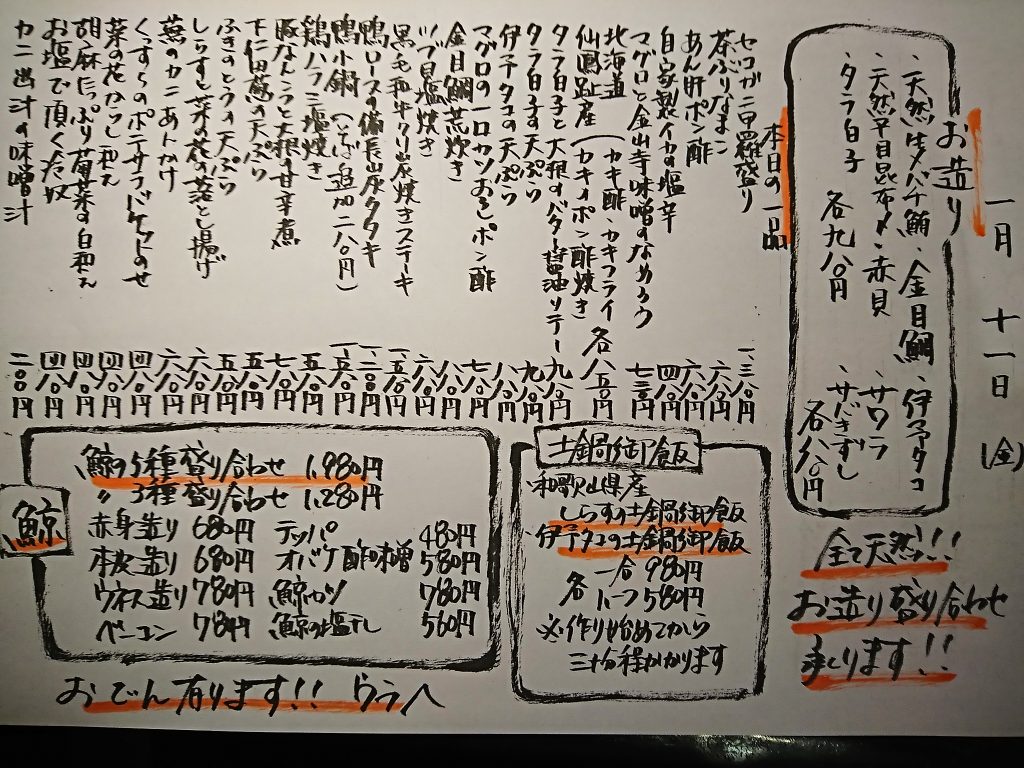 一月 十一日 (金)
お造り
・天然生メバチ鮪 ・金目鯛 ・伊予タコ
・天然平目昆布〆 ・赤貝 ・サワラ
・タラ白子 ・サバきずし
各九八〇円 各八八〇円
全て天然!!!
お造り盛り合わせ
承ります!!
本日の一品
セコガニ甲羅盛り 一、三八〇円
茶ぶりなまこ 六八〇円
あん肝ポン酢 六八〇円
自家製イカの塩辛 四八〇円
マグロと金山寺味噌のなめろう 七三〇円
北海道 (カキ酢・カキフライ
仙鳳趾産 (カキポン酢焼き) 各八五〇円
タラ白子と大根のバター醤油ソテー 九八〇円
タラ白子の天ぷら 九八〇円
伊予タコの天ぷら 八八〇円
マグロの一口カツおろしポン酢 七八〇円
金目鯛荒炊き 八八〇円
ツブ貝塩焼き 六八〇円
黒毛和牛クリ炭焼きステーキ
鴨ロースの備長山灰タタキ
鴨小鍋 (そば追加二八〇円)
鶏ハラミ塩焼き 五八〇円
豚なんこつと大根の甘辛煮 七八〇円
下仁田葱の天ぷら 五八〇円
ふきのとうの天ぷら 五八〇円
しらすと菜の花の落とし揚げ 六八〇円
蕪のカニあんかけ 六八〇円
くずし豆のポテサラバケットのせ 四八〇円
菜の花からし和え 四八〇円
胡麻たっぷり菊菜の白和え 四八〇円
お塩で頂くた奴 四八〇円
カニ出汁の味噌汁 二〇〇円
土鍋御飯
・和歌山県産
しらすの土鍋御飯
・伊予タコの土鍋御飯
各 一合 980円
ハーフ 580円
※作り始めてから
三十分程かかります
鯨
鯨の5種盛り合わせ 1,980円
〃 3種盛り合わせ 1,280円
赤身造り 680円 テッパ 480円
本皮造り 680円 オバケ酢味噌 580円
ウネス造り 780円 鯨カツ 780円
ベーコン 780円 鯨の塩干し 560円
おでん有ります!! ウラへ